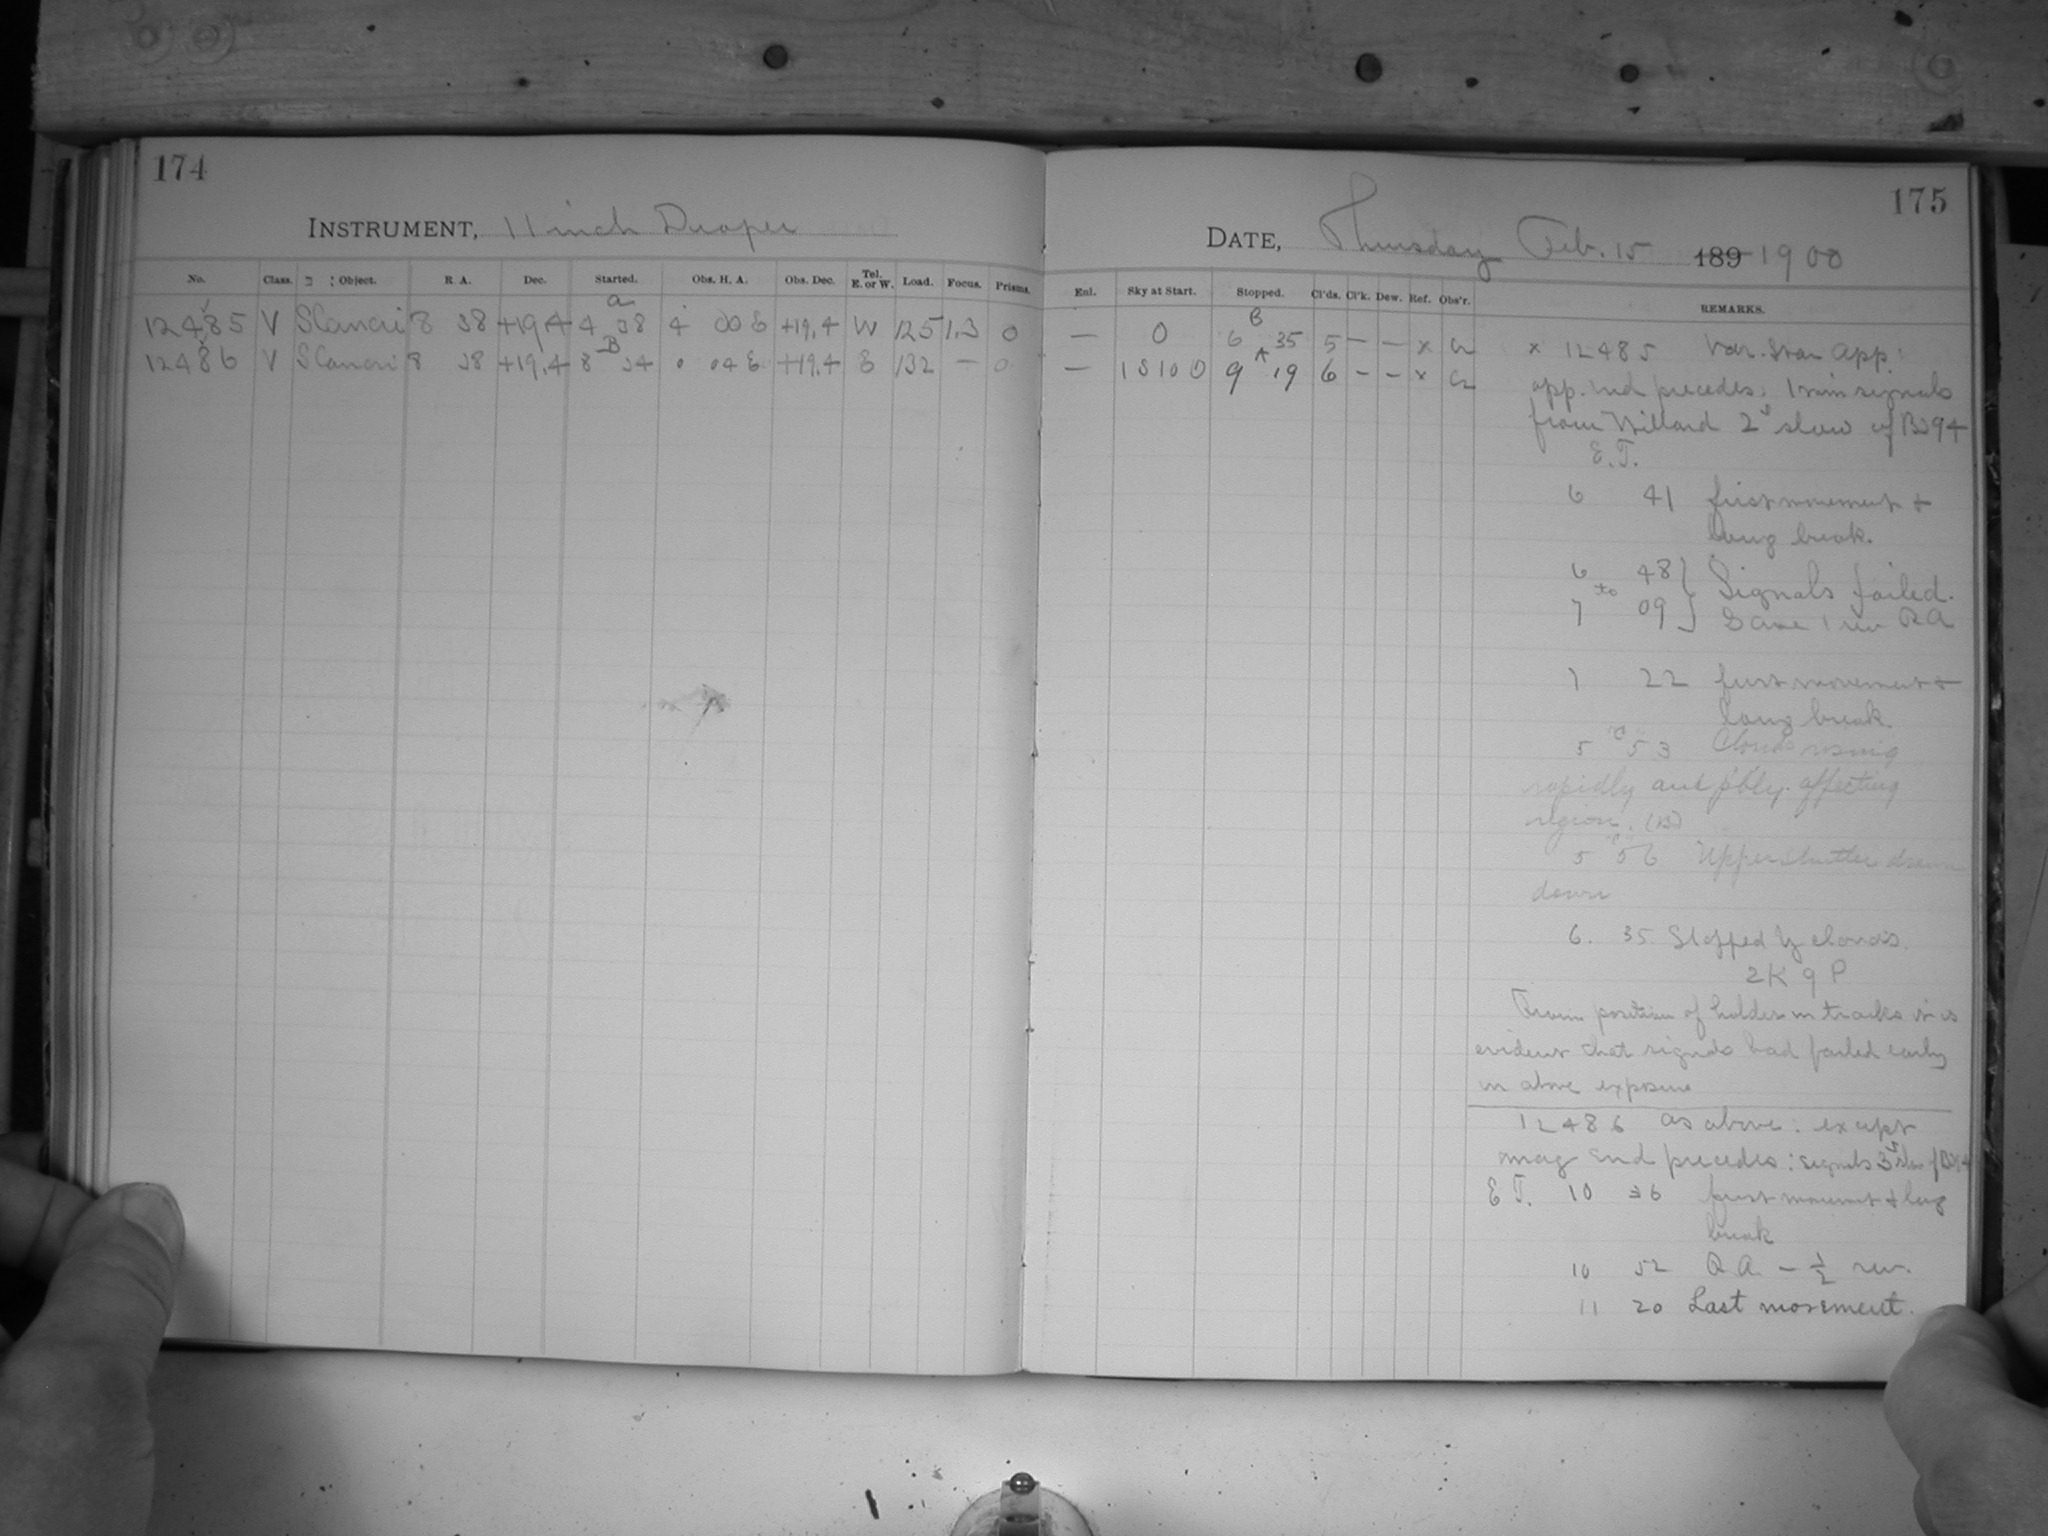 174
INSTRUMENT, 11 inch Draper
No. Class. Object. R. A. Dec. Started. Obs. H. A. Obs. Dec. Tel. E. or W. Load. Focus. Prisms.
12485 V S Cancri 8 38 +19.4 4 a 38 4 00 E +19.4 W 125 1.3 0
12486 V S Cancri 8 38 +19.4 8 B 34 0 04 E +19.4 E 132 — 0
175
DATE, Thursday Feb. 15 189 1900
Enl. Sky at Start. Stopped. Cl'ds. Cl'k. Dew. Ref. Obs'r. REMARKS.
— 0 6 B 35 5 — — x
— 15100 9 A 19 6 — — x
x 12485 Var. Star app:
app. end precedes: 1 min signals
from Willard 2s slow of B394
E.T.
6 41 first movement +
long break.
6 48 } Signals failed.
to
7 09 } Gave 1 rev RA
7 22 first movement +
long break.
5 C 53 Clouds rising
rapidly and pbly. affecting
region. (B)
5 C 56 Upper shutter drawn
down
6. 35. Stopped by clouds.
2K 9P
From position of holder in tracks it is
evident that signals had failed early
in above exposure
12486 as above: except
mag end precedes: signals 3s slow of B394
E T. 10 36 first movement + long
break
10 52 R.A. – 1/2 rev.
11 20 Last movement.